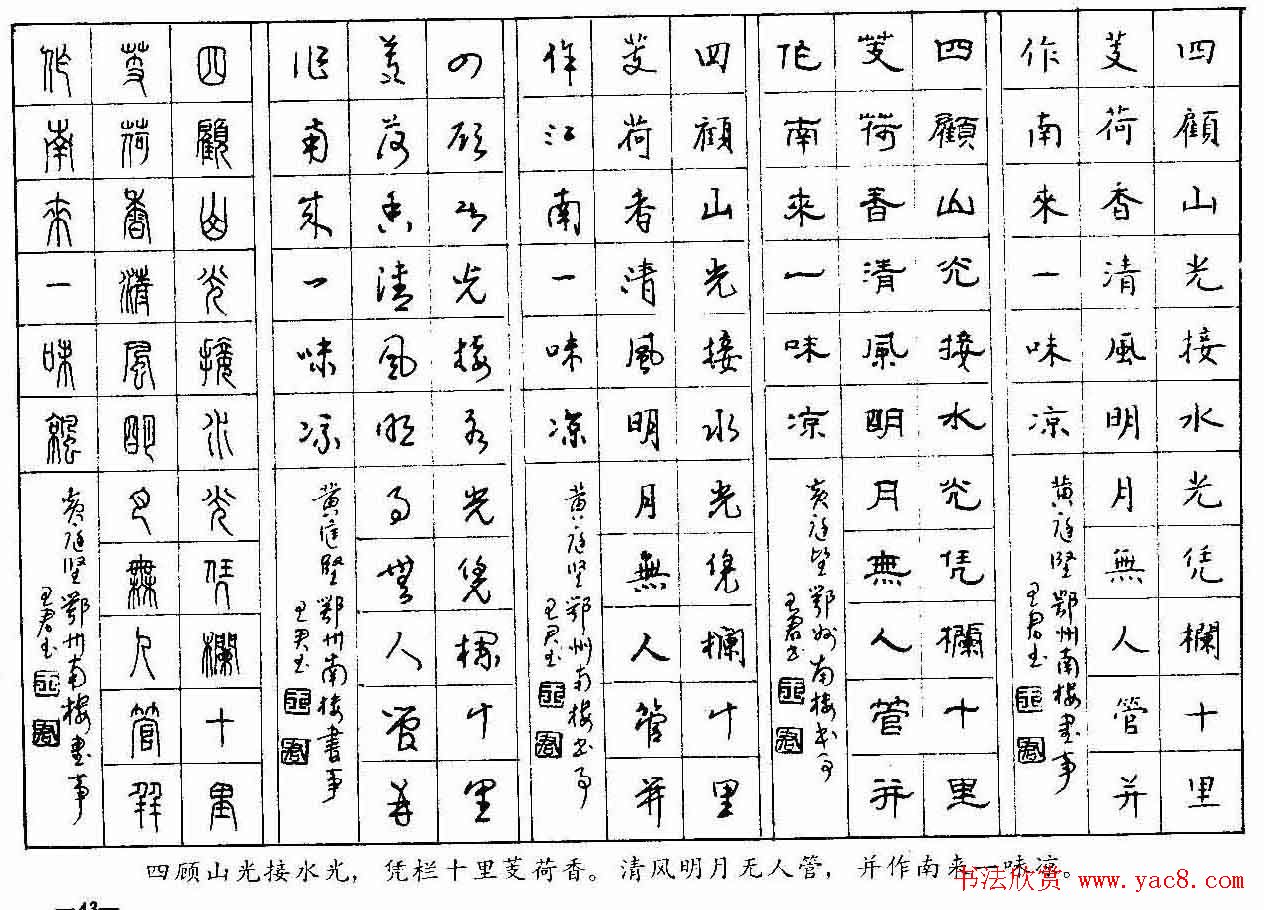 四顧山光接水光凭欄十里
芰荷香清風明月無人管并
作南來一味凉
黄庭坚鄂州南楼书事
王君书
四顧山光接水光凭欄十里
芰荷香清風明月無人管并
作南來一味凉
黄庭坚鄂州南楼书事
王君书
四顧山光接水光凭欄十里
芰荷香清風明月無人管并
作江南一味凉
黄庭坚鄂州南楼书事
王君书
四顧山光接水光凭欄十里
芰荷香清風明月無人管并
作南來一味凉
黄庭堅鄂州南楼書事
王君书
四顧山光接水光凭欄十里
芰荷香清風明月無人管并
作南來一味涼
黄庭坚鄂州南楼书事
王君书
四顾山光接水光，凭栏十里芰荷香。清风明月无人管，并作南来一味凉。
书法欣赏 www.yac8.com
—43—